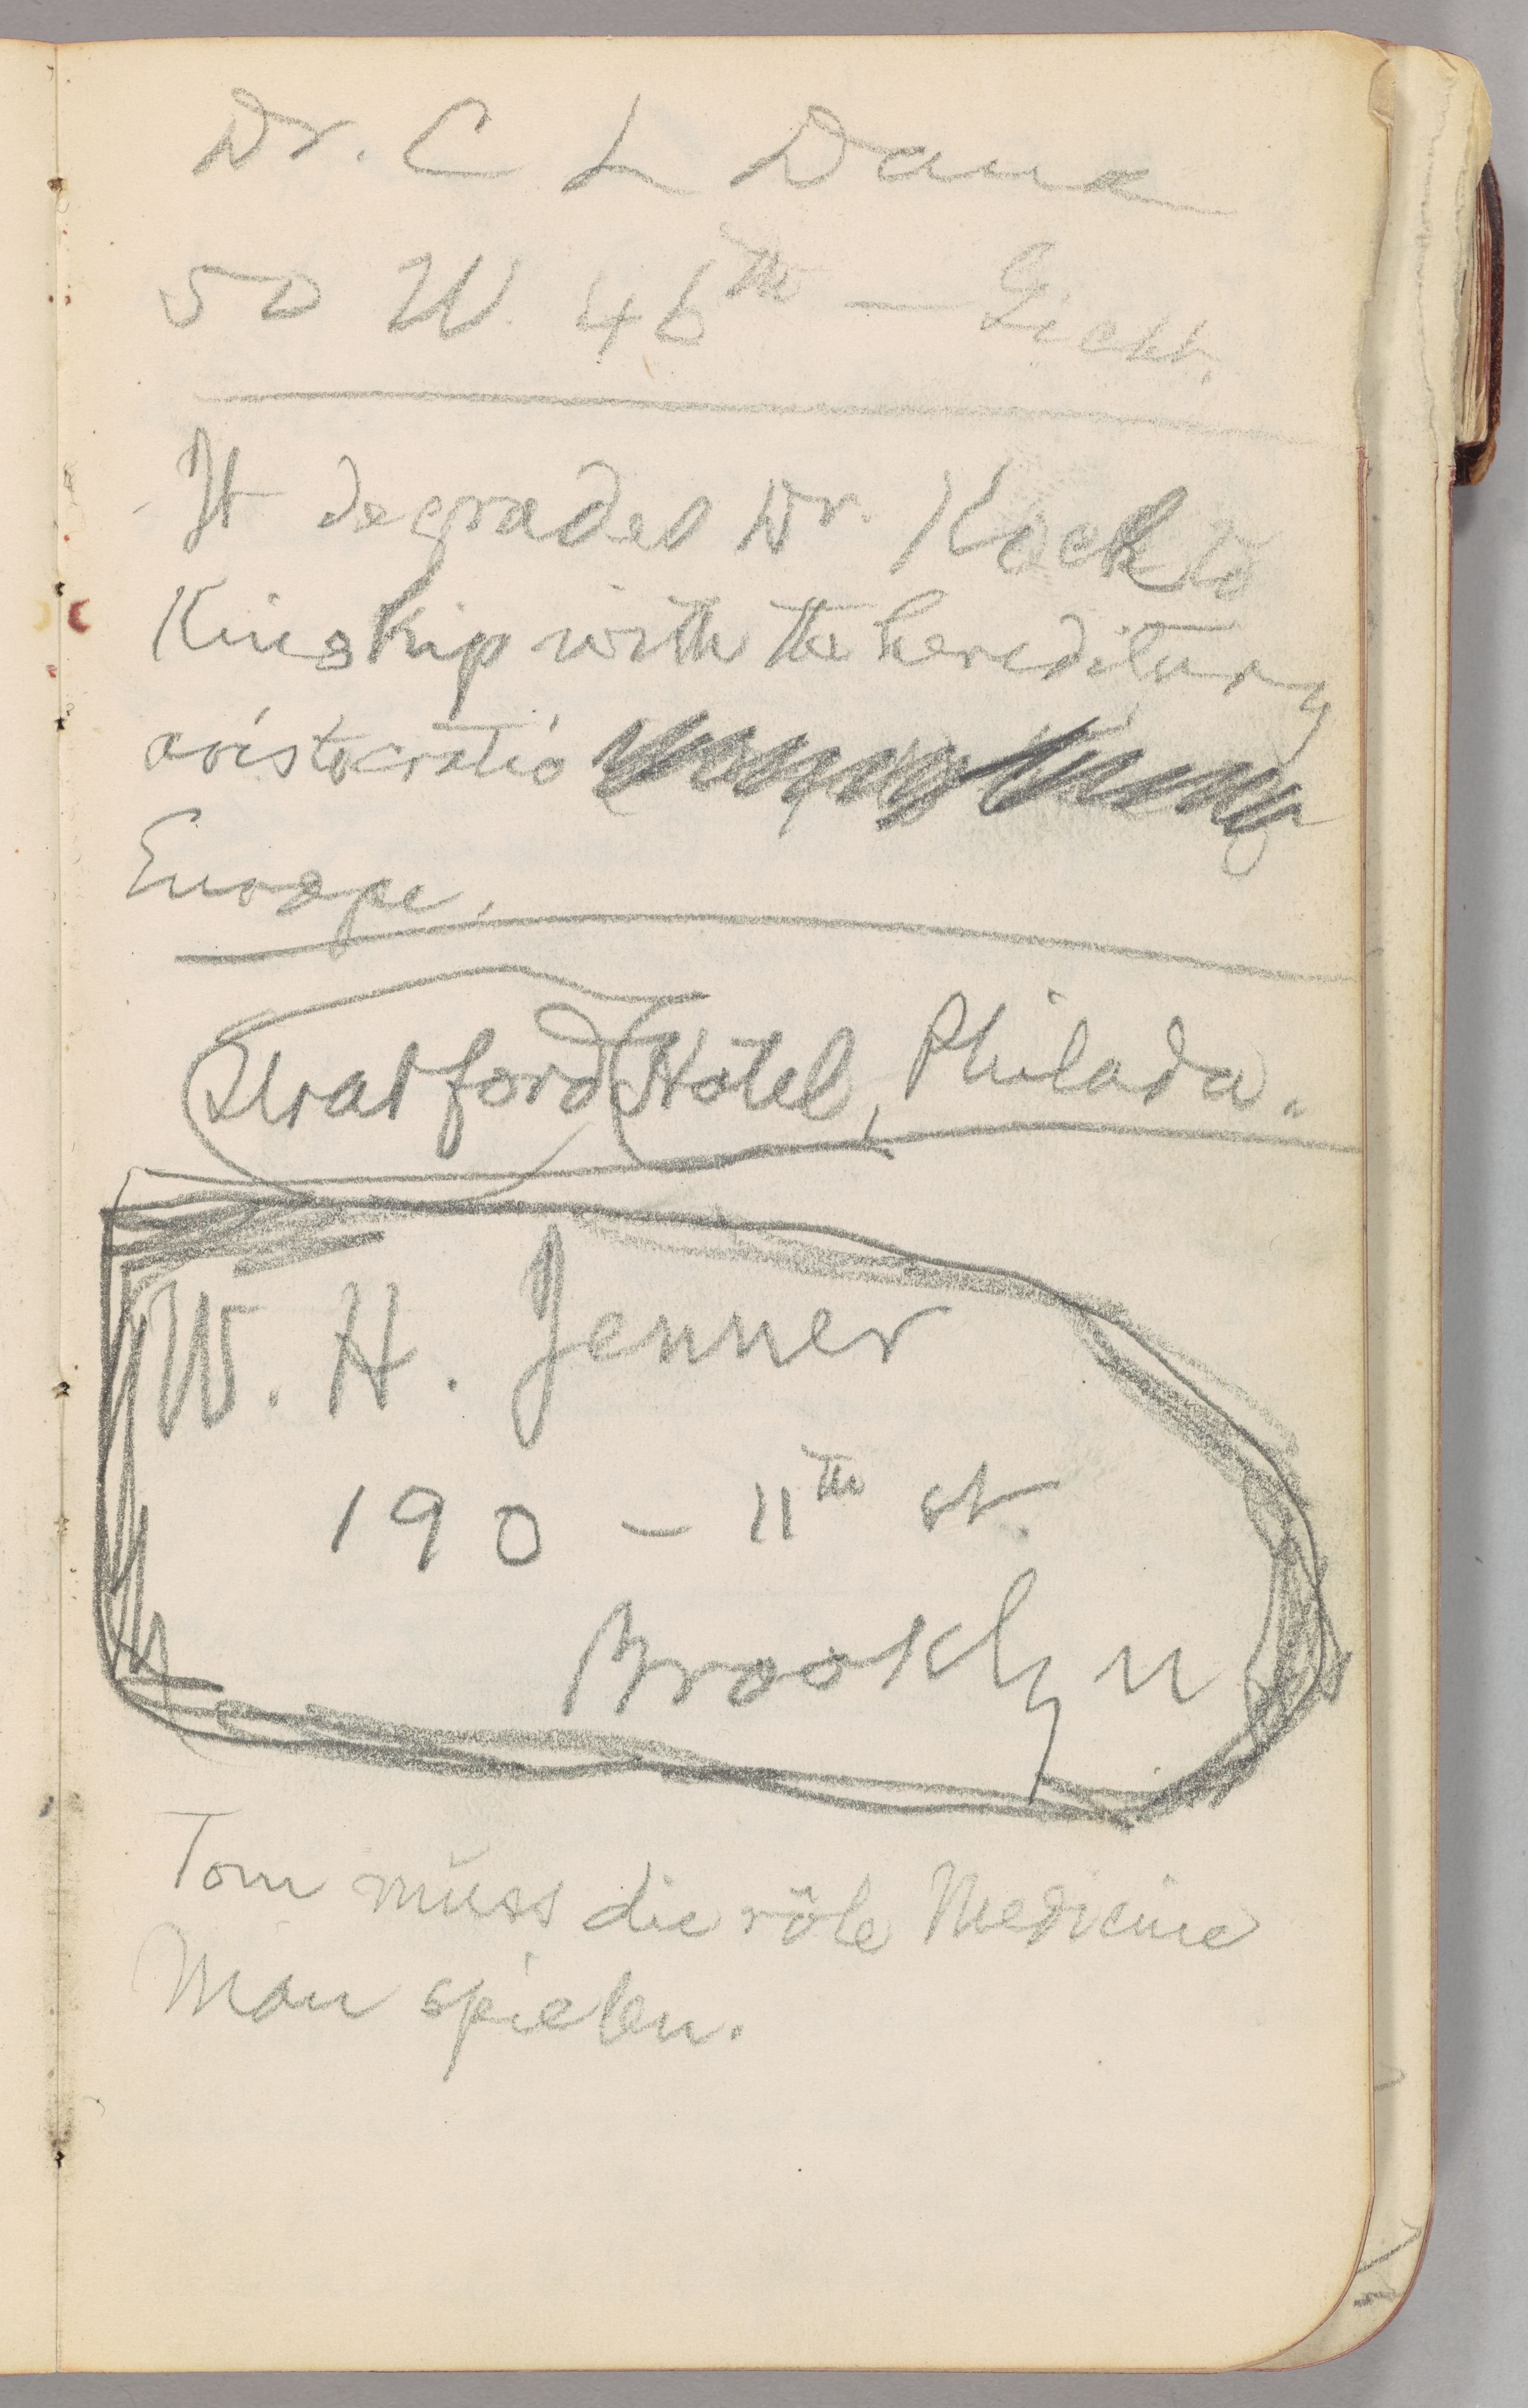 Dr. C L Dana
50 W. 46th — Gicht.
It degrades Dr. Koch to
Kinship with the hereditary
aristocratic
Europe.
Stratford Hotel, Philada.
W. H. Jenner
190 – 11th st.
Brooklyn
Tom muss die rôle Medicine
Man spielen.